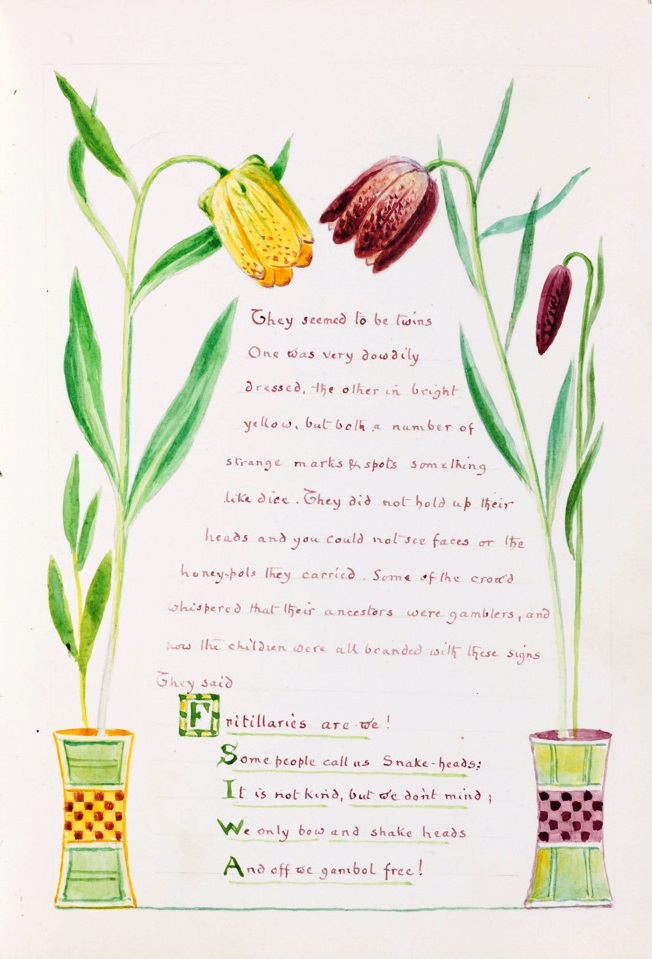 They seemed to be twins
One was very dowdily
dressed, the other in bright
yellow, but both a number of
strange marks & spots something
like dice. They did not hold up their
heads and you could not see faces or the
honey-pots they carried. Some of the crowd
whispered that their ancestors were gamblers, and
now the children were all branded with these signs
They said
Fritillaries are we!
Some people call us Snake-heads:
It is not kind, but we don't mind;
We only bow and shake heads
And off we gambol free!